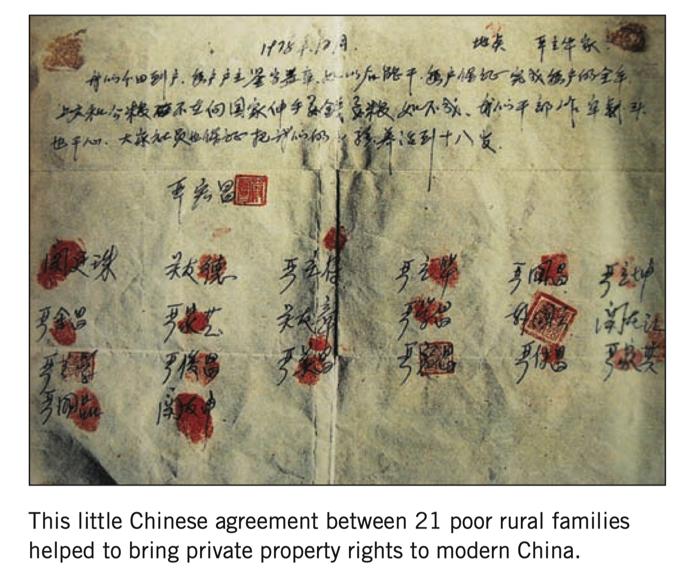 1978年12月. 地点 严立华家.
我们分田到户. 每户户主签字盖章. 如以后能干. 每户保证完成每户的全年
上交和公粮 不在向国家伸手要钱要粮. 如不成. 我们干部作牢刹头
也干心. 大家社员也保证把我们的小孩养活到十八岁.
严宏昌
关友德 严立付 严立华 严国昌 严立坤
严金昌 严家芝 关友章 严学昌 关友江
严立学 严俊昌 严美昌 严付昌 严家其
严国品 关友申
This little Chinese agreement between 21 poor rural families
helped to bring private property rights to modern China.